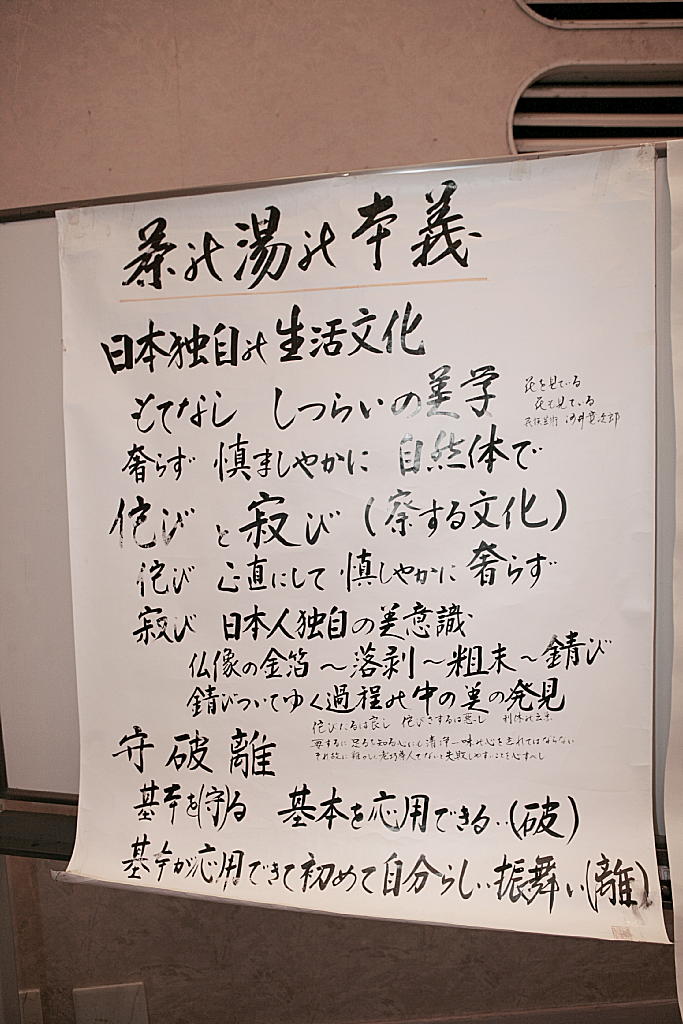 茶の湯の本義
日本独自の生活文化
もてなし しつらいの美学
花を見ている
花も見ている
河井寛次郎
奢らず 慎ましやかに 自然体で
侘び と 寂び (察する文化)
侘び 正直にして 慎しやかに 奢らず
寂び 日本人独自の美意識
仏像の金箔～落剥～粗末～錆び
錆びついてゆく過程の中の美の発見
侘びたるは良し 侘びさするは悪し
守破離
要するに足るを知る心にも清浄一味の心を忘れてはならない
基本を(守)る 基本を応用できる..(破)
基本が応用できて初めて自分らしい振舞い(離)